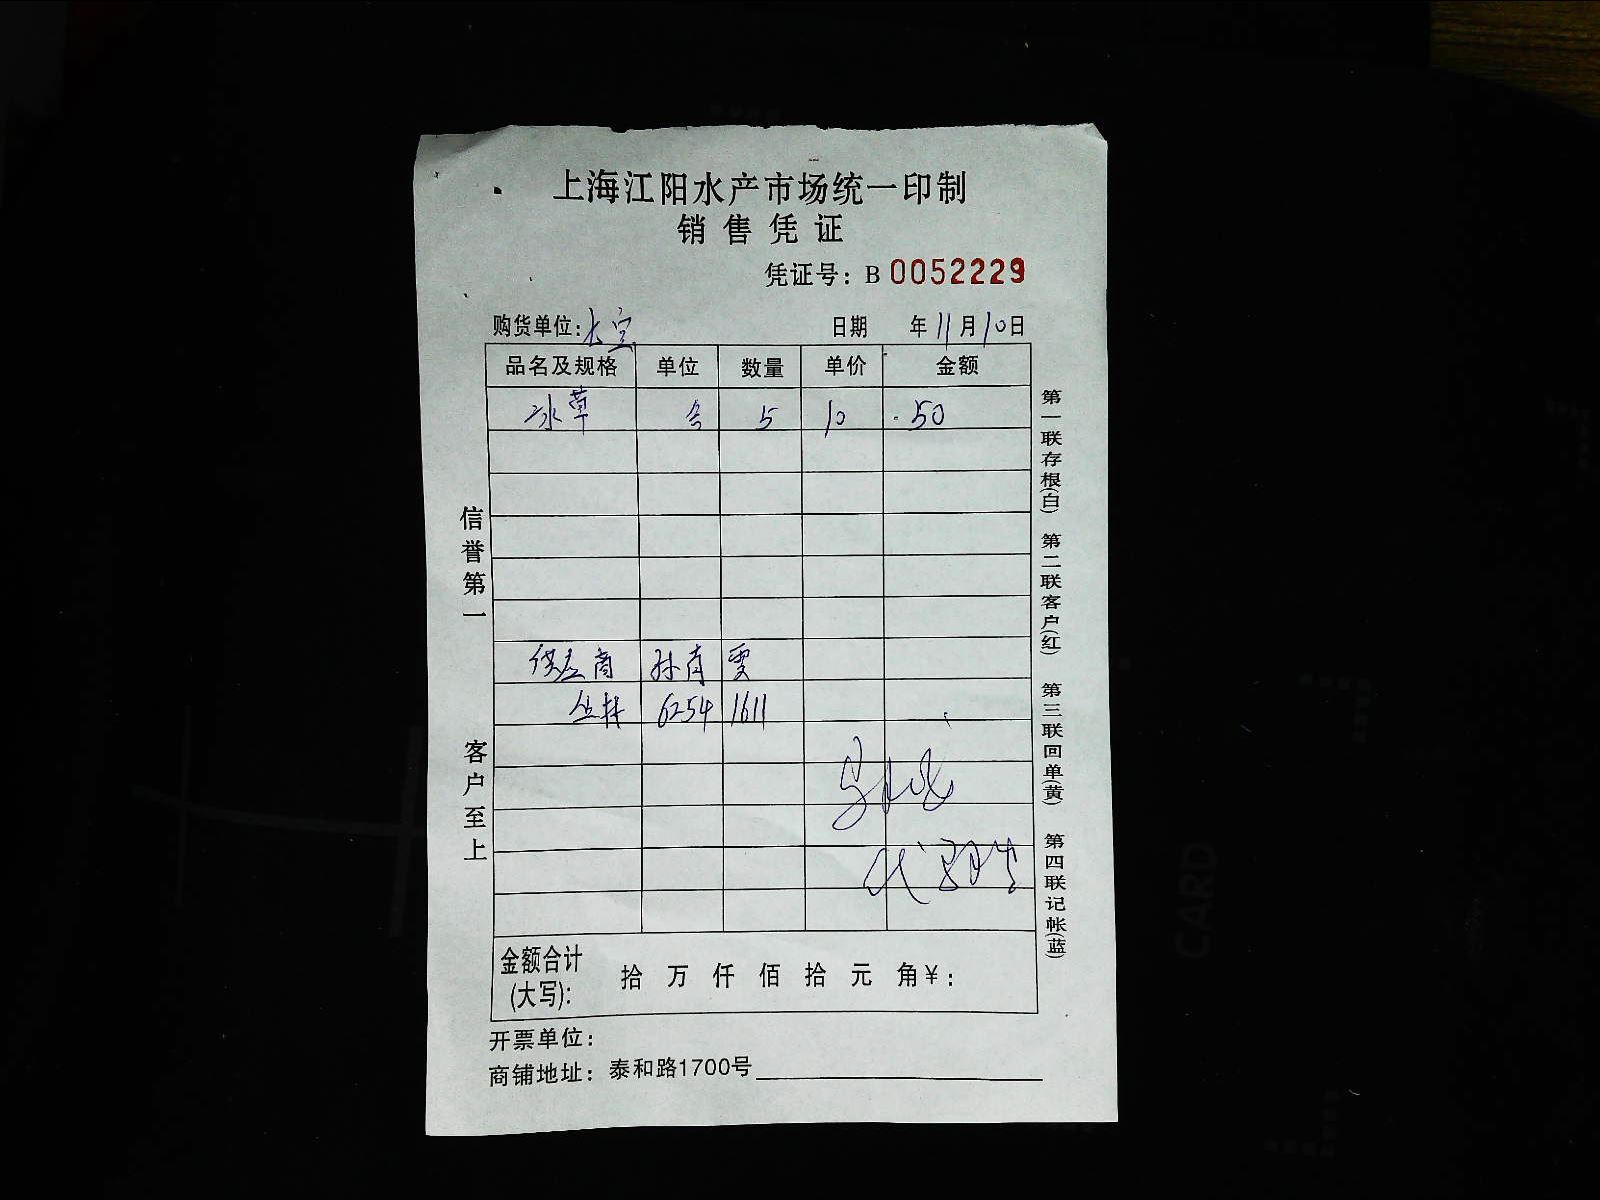 上海江阳水产市场统一印制
销售凭证
凭证号：B 0052229
购货单位：大宝 日期 年 11 月 10 日
品名及规格 单位 数量 单价 金额
冰草 5 10 50
供应商 孙育
6254 1611
金额合计 拾 万 仟 佰 拾 元 角 ¥：
(大写)：
开票单位：
商铺地址：泰和路1700号
信誉第一
客户至上
第一联存根(白) 第二联客户(红) 第三联回单(黄) 第四联记帐(蓝)